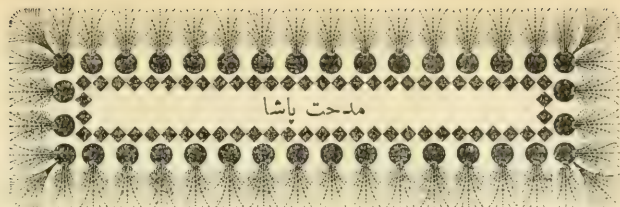 مدحت پاشا